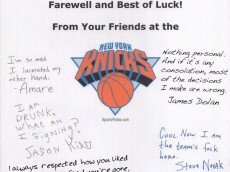 Farewell and Best of Luck!
From Your Friends at the
NEW YORK
KNICKS
SportsPickle.com
I'm so mad
I lacerated my
other hand.
-Amare
Nothing personal.
And if it's any
consolation, most of
the decisions
I make are wrong.
James Dolan
I AM
DRUNK.
WHAT AM
I SIGNING?
JASON KIDD
Cool. Now I am
the team's
here.
Steve Novak
I always respected how you liked
you're gone,